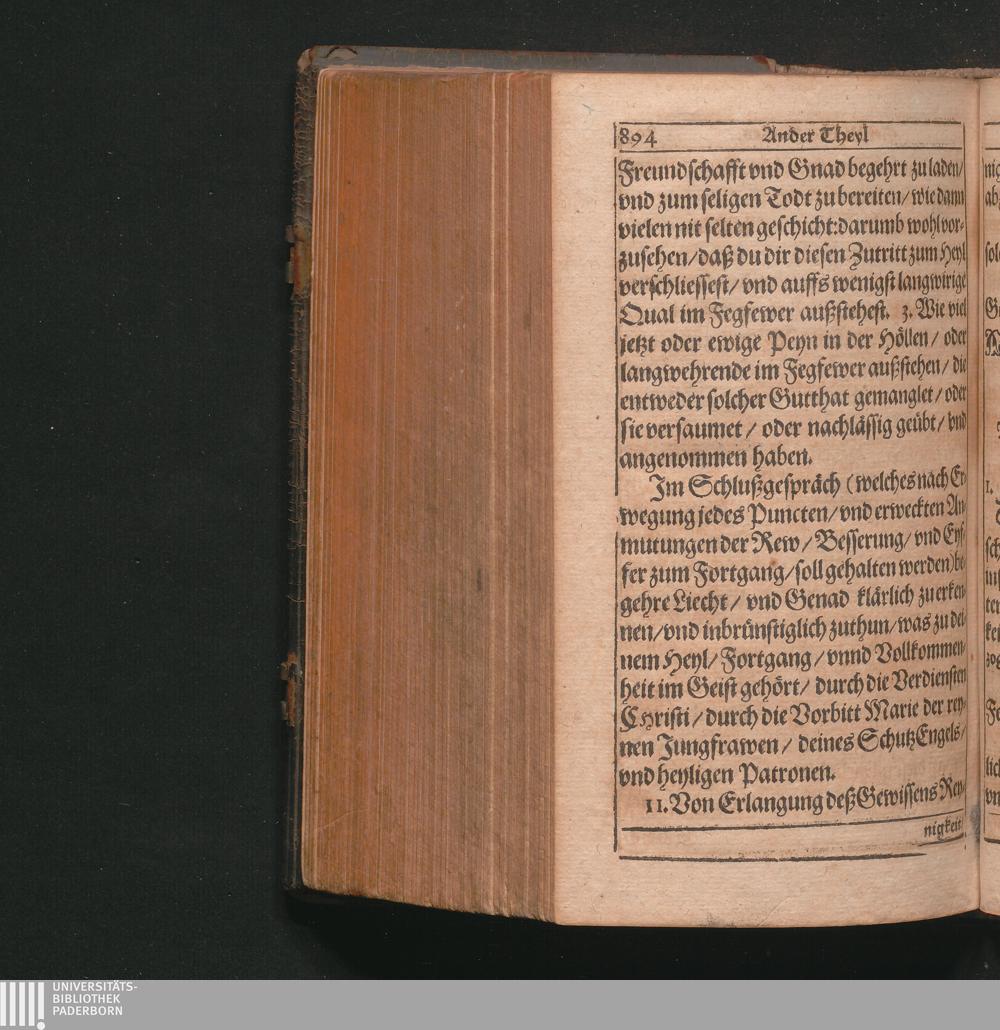 894 Ander Theyl
Freundschafft vnd Gnad begehrt zu laden/
vnd zum seligen Todt zu bereiten/ wie dann
vielen nit selten geschicht: darumb wohl vor-
zusehen/ daß du dir diesen Zutritt zum Heyl
verschliessest/ vnd auffs wenigst langwirige
Qual im Fegfewer außstehest. 3. Wie viel
jetzt oder ewige Peyn in der Höllen/ oder
langwehrende im Fegfewer außstehen/ die
entweder solcher Gutthat gemanglet/ oder
sie versaumet/ oder nachlässig geübt/ vnd
angenommen haben.
Im Schlußgespräch (welches nach Er-
wegung jedes Puncten/ vnd erweckten An-
mutungen der Rew/ Besserung/ vnd Eyf-
fer zum Fortgang/ soll gehalten werden) be-
gehre Liecht/ vnd Genad klärlich zu erken-
nen/ vnd inbrünstiglich zuthun/ was zu dei-
nem Heyl/ Fortgang/ vnnd Vollkommen-
heit im Geist gehört/ durch die Verdiensten
CHristi/ durch die Vorbitt Marie der rey-
nen Jungfrawen/ deines SchutzEngels/
vnd heyligen Patronen.
11. Von Erlangung deß Gewissens Rey-
nigkeit
UNIVERSITÄTS-
BIBLIOTHEK
PADERBORN